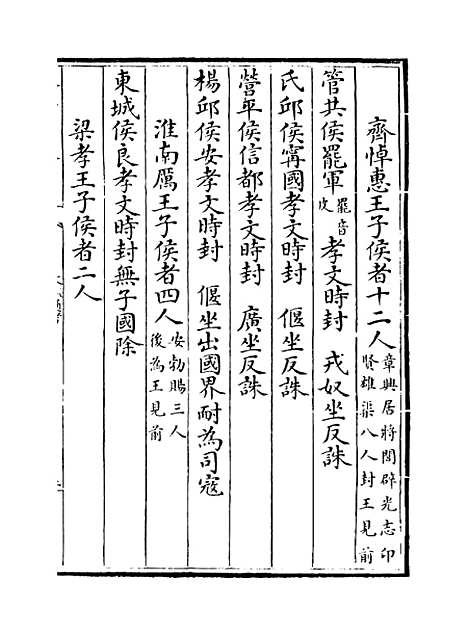 齊悼惠王子侯者十二人章興居將閭辟光志卬賢雄渠八人封王見前
管共侯罷軍罷音皮孝文時封　戎奴坐反誅
氏邱侯甯國孝文時封　偃坐反誅
營平侯信都孝文時封　廣坐反誅
楊邱侯安孝文時封　偃坐出國界耐為司寇
淮南厲王子侯者四人安勃賜三人後為王見前
東城侯良孝文時封無子國除
梁孝王子侯者二人